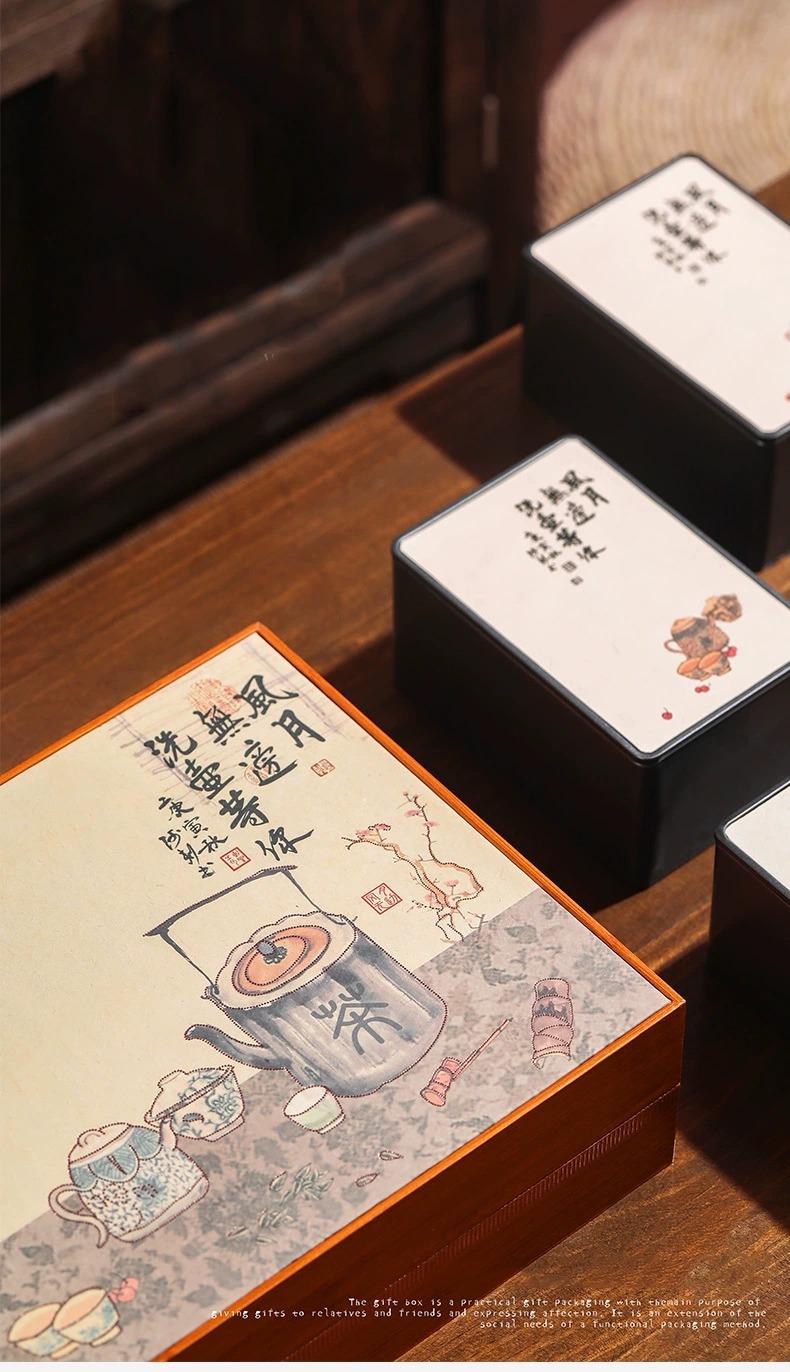 風月
無邊
洗壺等你
茶
風月
無邊
洗壺等你
風月
無邊
洗壺等你
The gift box is a practical gift packaging with themain purpose of
giving gifts to relatives and friends and expressing affection. It is an extension of the
social needs of a functional packaging method.